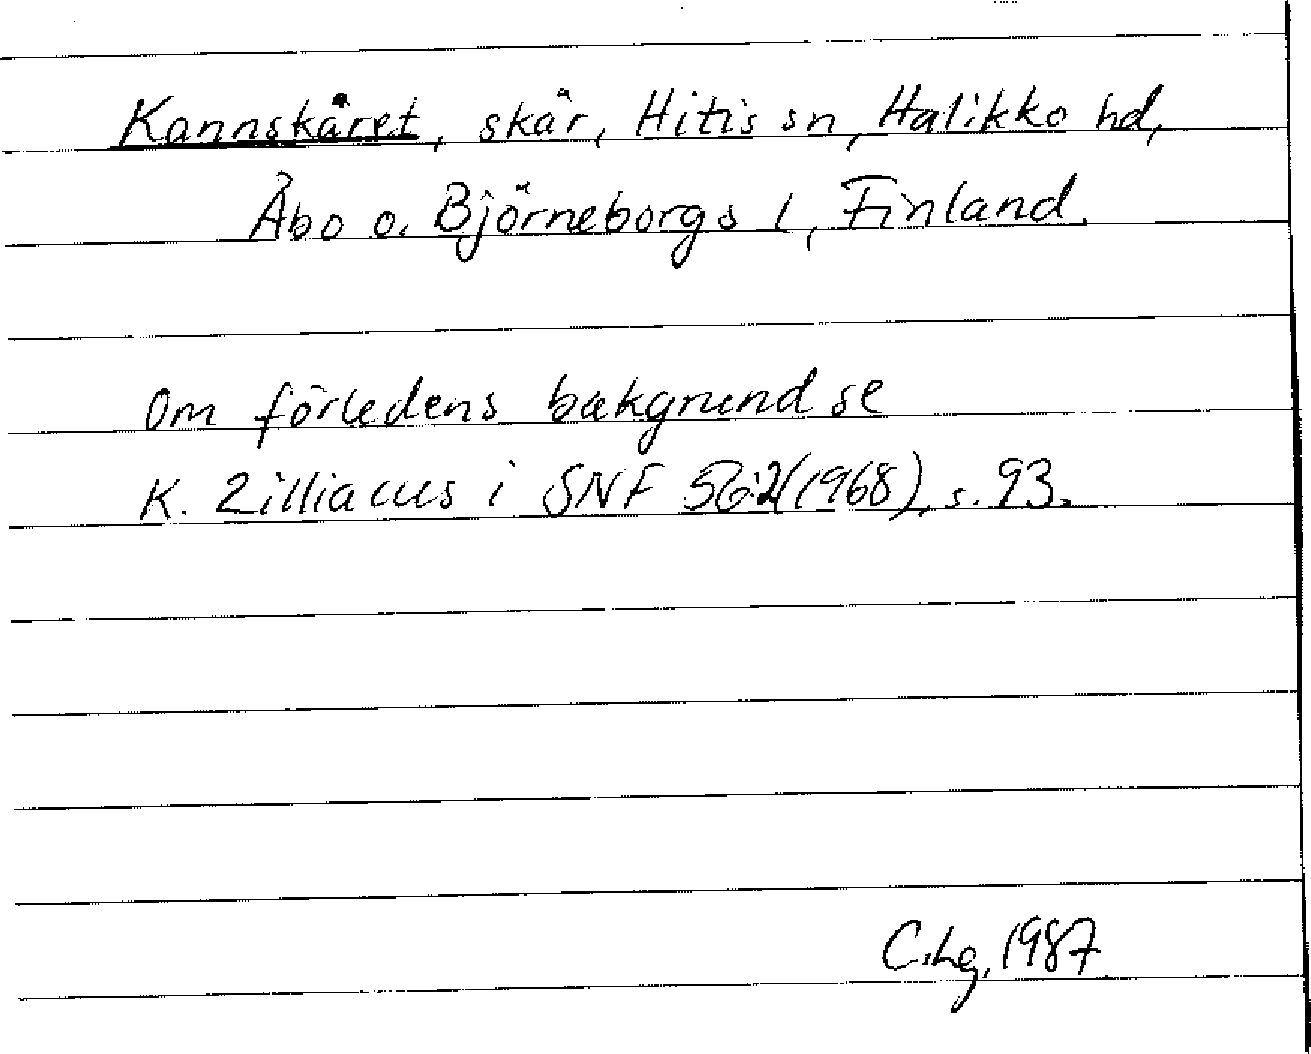 Kannskäret, skär, Hitis sn, Halikko hd,
Åbo o. Björneborgs l, Finland.
Om förledens bakgrund se
K. Zilliacus i SNF 56:2(1968), s. 93.
C.Lg, 1987